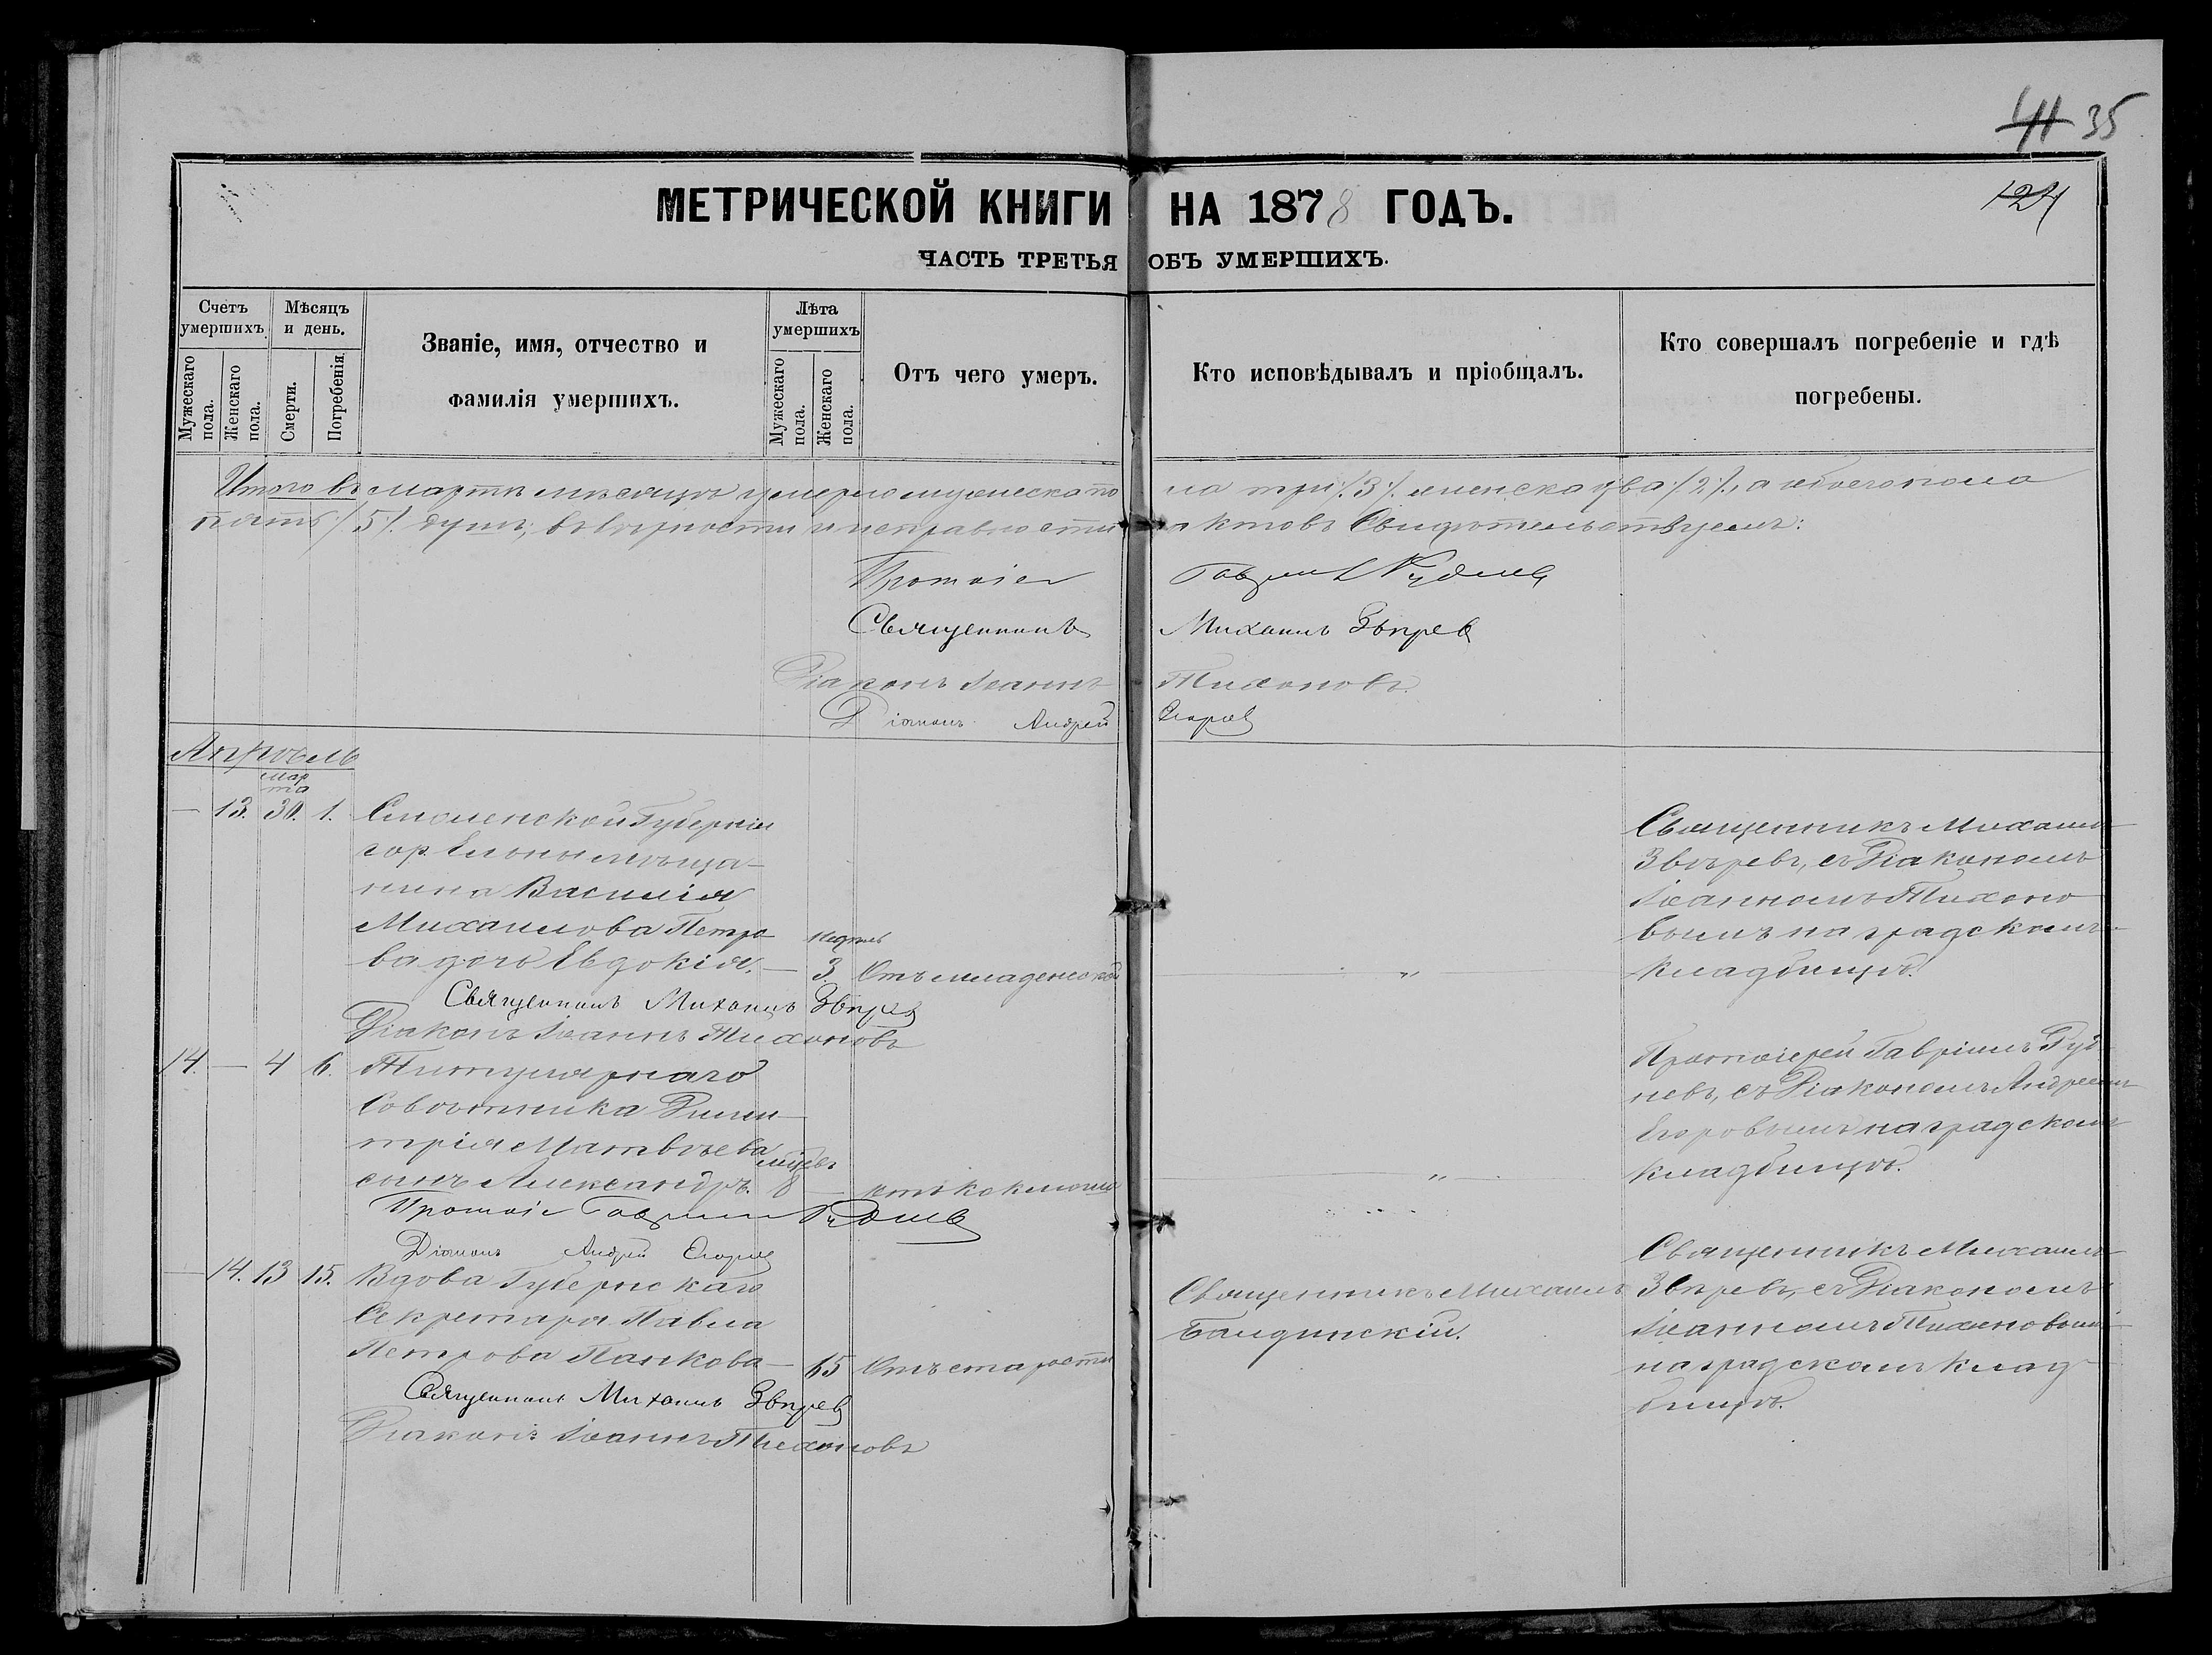 35
МЕТРИЧЕСКОЙ КНИГИ НА 1878 ГОДЪ.
124
ЧАСТЬ ТРЕТЬЯ ОБЪ УМЕРШИХЪ.
Счетъ умершихъ.
Мужескаго пола.
Женскаго пола.
Мѣсяцъ и день.
Смерти.
Погребенія.
Званіе, имя, отчество и
фамилія умершихъ.
Лѣта умершихъ
Мужескаго пола.
Женскаго пола.
Отъ чего умеръ.
Кто исповѣдывалъ и пріобщалъ.
Кто совершалъ погребеніе и гдѣ
погребены.
Итого въ мартѣ мѣсяцѣ умерло мужеска пола три /3/. женска два /2/, а обоего пола
пять /5/. душъ; въ вѣрности и исправности актовъ свидѣтельствуемъ:
Протоіе Гавріил
Священникъ Михаилъ Звѣрев
Діаконъ Іоаннъ Тихоновъ.
Діаконъ Андрей Егоров
Апрѣль
мар
та
— 13. 30. 1. Смоленской Губерніи
гор. Ельны мѣща-
нина Василія
Михаилова Петро
ва дочь Евдокія. — 3. Отъ младенской
недѣль
Священникъ Михаилъ Звѣрев
Діаконъ Іоаннъ Тихоновъ
Священникъ Михаилъ
Звѣревъ, съ Діакономъ
Іоанномъ Тихоно
вымъ на градскомъ
кладбищѣ.
14. — 4 6. Титулярнаго
Совѣтника Дими-
трія Матвѣева
сынъ Александръ. 8 — отъ коклюша
мѣсяцевъ
Протоіе Гавріил
Діаконъ Андрей Егоров
Протоіерей Гавріилъ Руд-
невъ, съ Діакономъ Андреемъ
Егоровымъ на градскомъ
кладбищѣ.
— 14. 13 15. Вдова Губернскаго
Секретаря Павла
Петрова Панкова — 65 Отъ старости
Священникъ Михаилъ Звѣрев
Діаконъ Іоаннъ Тихоновъ
Священникъ Михаилъ
Балдинскій.
Священникъ Михаилъ
Звѣревъ, съ Діакономъ
Іоанномъ Тихоновымъ
на градскомъ клад-
бищѣ.